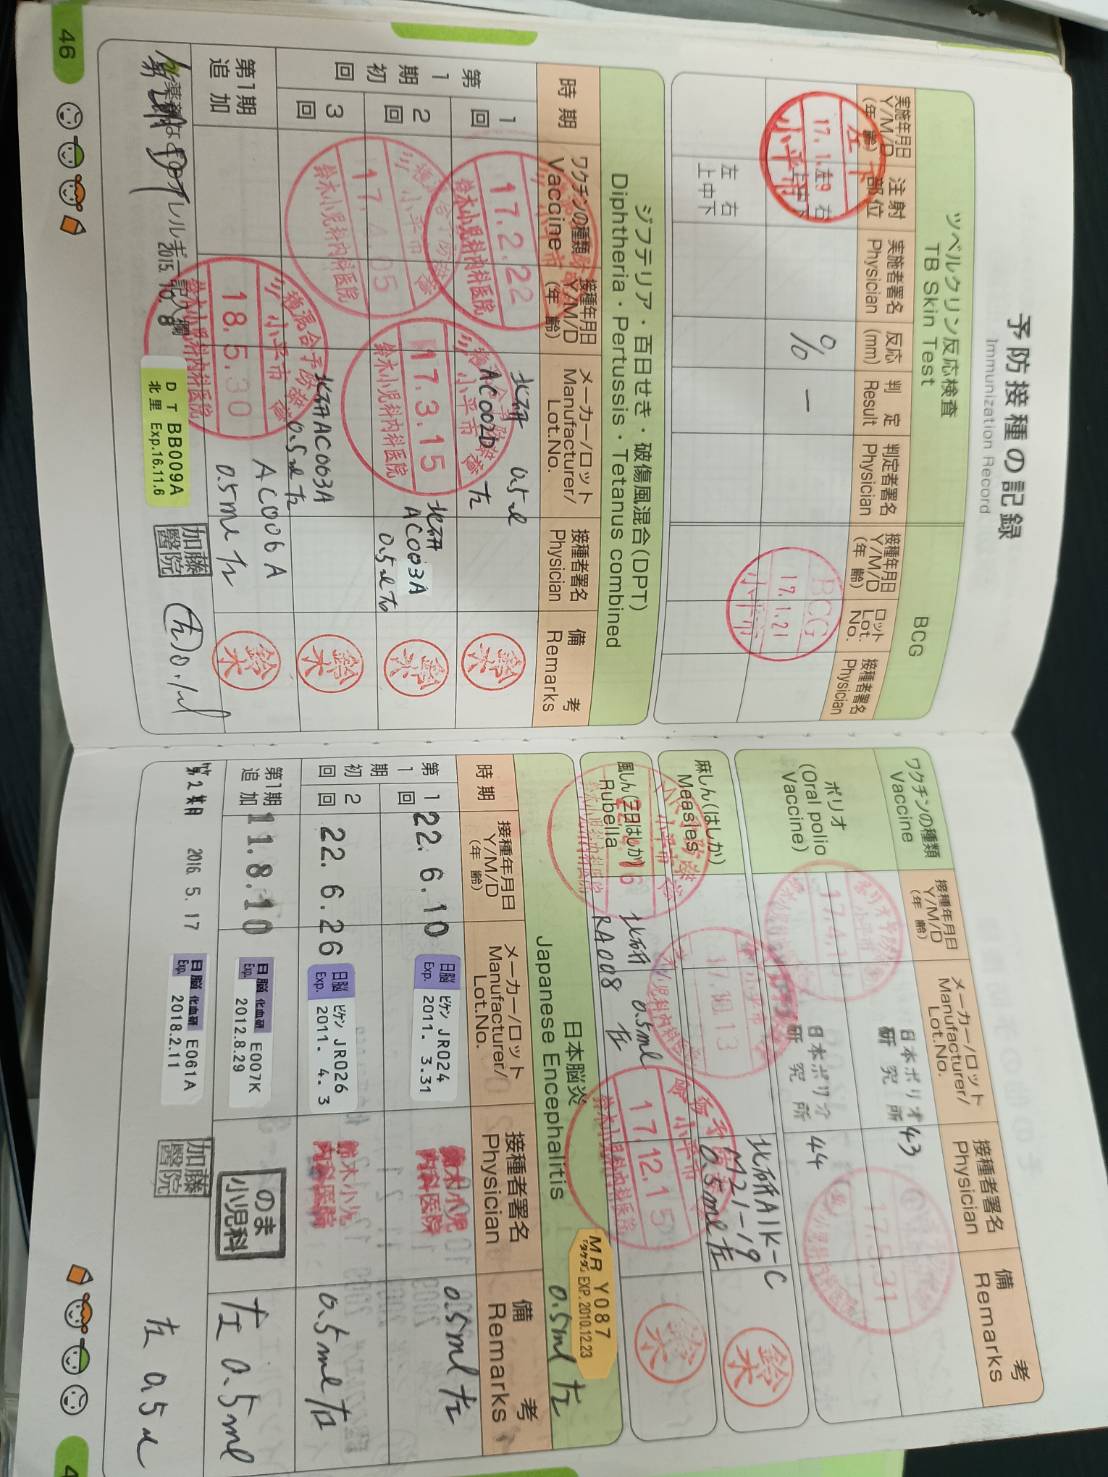 予防接種の記録
Immunization Record
ツベルクリン反応検査
TB Skin Test
BCG
実施年月日
Y/M/D
(年 齢)
注射
部位
実施者署名
Physician
反応
(mm)
判 定
Result
判定者署名
Physician
接種年月日
Y/M/D
(年 齢)
ロット
Lot.
No.
接種者署名
Physician
小平市
左 右
上中下
左 右
上中下
%
－
BCG
17.1.21
小平市
ジフテリア・百日せき・破傷風混合(DPT)
Diphtheria・Pertussis・Tetanus combined
時 期
ワクチンの種類
Vaccine
接種年月日
Y/M/D
(年 齢)
メーカー/ロット
Manufacturer/
Lot.No.
接種者署名
Physician
備 考
Remarks
第1期初回
1回
17.2.22
鈴木小児科内科医院
北研
AC002D
0.5ml
左
鈴木
2回
小平市
17.3.15
鈴木小児科内科医院
北研
AC003A
0.5ml 左
鈴木
3回
小平市
鈴木小児科内科医院
北研AC003A
0.5ml 左
鈴木
第1期
追 加
小平市
18.5.30
鈴木小児科内科医院
AC006A
0.5ml 左
鈴木
第2期 DT
2015.10.8
DT BB009A
北里 Exp.16.11.6
加藤
醫院
左 0.1ml
46
ワクチンの種類
Vaccine
接種年月日
Y/M/D
(年 齢)
メーカー/ロット
Manufacturer/
Lot.No.
接種者署名
Physician
備 考
Remarks
ポリオ
(Oral polio
Vaccine)
日本ポリオ
研究所
43
17.5.31
日本ポリオ
研究所
44
麻しん(はしか)
Measles
17.10.13
北研AIK-C
M21-19
0.5ml 左
鈴木
風しん(三日はしか)
Rubella
北研
RA008
0.5ml
左
小平市
17.12.15
鈴木
MR Y087
"タケダ" EXP.2010.12.23
0.5ml 左
日本脳炎
Japanese Encephalitis
時 期
接種年月日
Y/M/D
(年 齢)
メーカー/ロット
Manufacturer/
Lot.No.
接種者署名
Physician
備 考
Remarks
第1期初回
1回
22.6.10
日脳 ビケン JR024
Exp. 2011. 3.31
鈴木小児
内科医院
0.5ml 左
2回
22.6.26
日脳 ビケン JR026
Exp. 2011. 4. 3
鈴木小児
内科医院
0.5ml 左
第1期
追加
11.8.10
日脳 化血研 E007K
Exp. 2012.8.29
のま
小児科
左 0.5ml
第2期
2016. 5. 17
日脳 化血研 E061A
Exp. 2018.2.11
加藤
醫院
左 0.5ml